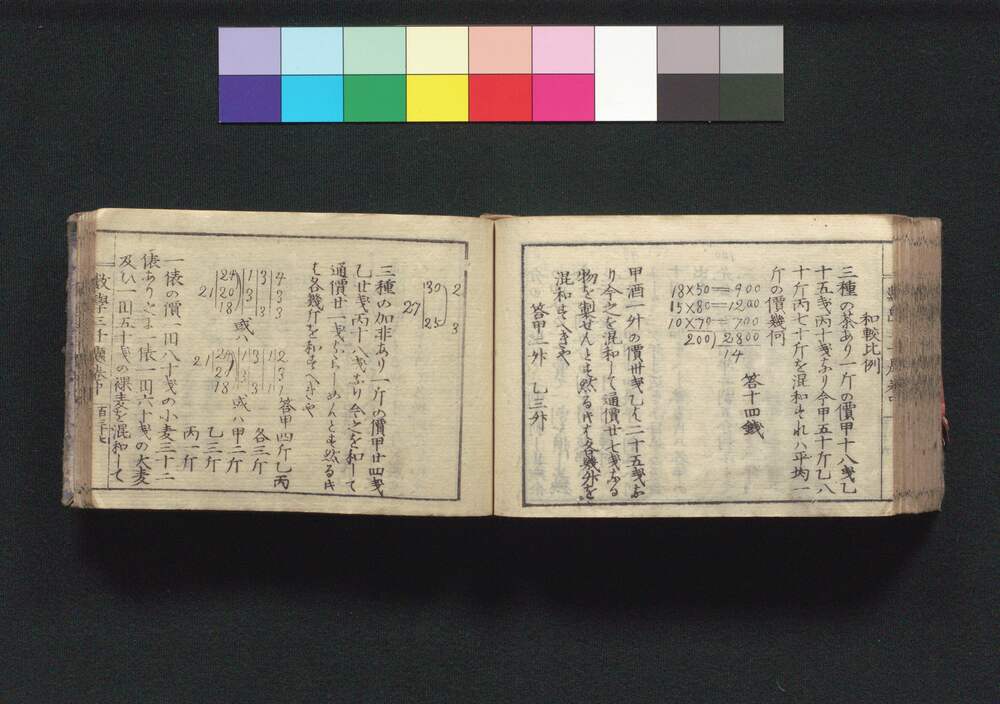 和較比例
三種の茶あり一斤の價甲十八戔乙
十五戔丙十戔なり今甲五十斤乙八
十斤丙七十斤を混和すれハ平均一
斤の價幾何
18×50=900
15×80=1200
10×70=700
200)2800
14
答十四錢
甲酒一升の價卅戔乙ハ二十五戔な
り今之を混和して通價廿七戔なる
物を製せんとす然るときは各幾升を
混和すへきや
答甲二升 乙三升
27 30 2
25 3
三種の加非あり一斤の價甲廿四戔
乙廿戔丙十八戔なり今之を和して
通價廿一戔ならしめんとす然るとき
は各幾斤を和すへきや
21 24 1 3 4
20 3 3
18 3 3
或ハ
21 24 1 3 1 2
20 3 3
21 18 3 1 1
答甲四斤乙丙
各三斤
或ハ甲二斤
乙三斤
丙一斤
一俵の價一田八十戔の小麦三十二
俵あり之に一俵一田六十戔の大麦
及ひ一田五十戔の裸麦を混和して
數學三千題卷中 百三十七